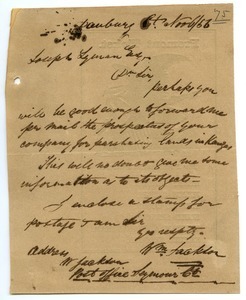 Danbury Ct Nov 6/55
75
Joseph Lyman Esq.
Dr Sir
perhaps you
will be good enough to forward me
per mail the prospectus of your
company for purchasing lands in Kansas
This will no doubt give me some
information as to its object.
I inclose a stamp for
postage & am Sir
yrs respty.
Wm Jackson
address
W Jackson
Post office Seymour Ct